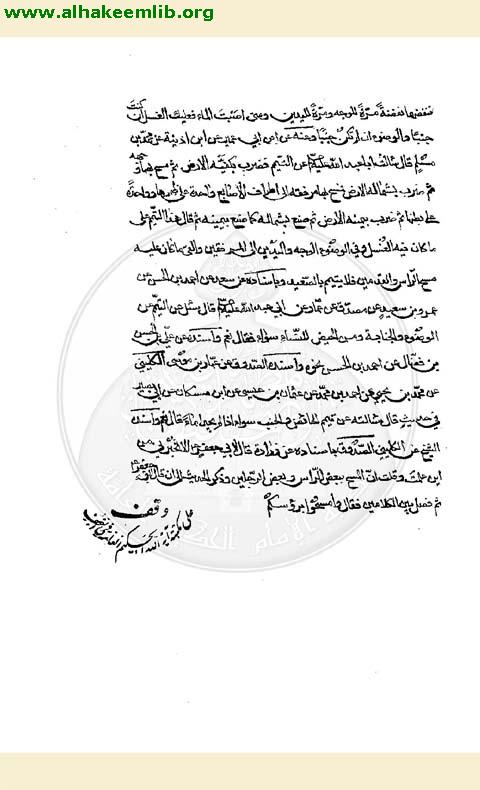 www.alhakeemlib.org
فتنفضهما نفضة مرّة للوجه ومرّة لليدين ومتى اصبت الماء فعليك الغسل ان كنت
جنبًا والوضوء ان لم تكن جنبًا وعنه عن ابن ابي عمير عن ابن اذينة عن محمد بن
مسلم قال سألت ابا عبد الله عن التيمم فضرب بكفيه الارض ثم مسح بهما وجهه
ثم ضرب بشماله الارض فمسح بها مرفقه الى اطراف الاصابع واحدة على ظهرها وواحدة
على بطنها ثم ضرب بيمينه الارض ثم صنع بشماله كما صنع بيمينه ثم قال هذا التيمم على
ما كان فيه الغسل وفي الوضوء الوجه واليدين الى المرفقين والقى ما كان عليه
مسح الرأس والقدمين فلا يتيمم بالصعيد وباسناده عن سعد عن احمد بن الحسن عن
عمرو بن سعيد عن مصدق عن عمار عن ابي عبد الله قال سئل عن التيمم من
الوضوء والجنابة ومن الحيض للنساء سواء فقال نعم واسند عن علي بن الحسن
بن فضال عن احمد بن الحسن نحوه واسنده الصدوق عن عمار بن موسى الكليني
عن محمد بن يحيى عن احمد بن محمد عن عثمان بن عيسى عن ابن مسكان عن ابي بصير
في حديث قال سالته عن تيمم الحائض والجنب سواء اذا لم يجدا ماءً قال نعم واسنده
الشيخ عن الكليني الصدوق باسناده عن زرارة قال قلت لابي جعفر الا تخبرني من
اين علمت وقلت انّ المسح ببعض الراس وبعض الرجلين وذكر الحديث الى ان قال ابو جعفر
ثم فصل بين الكلامين فقال وامسحوا برؤسكم
وقف
مكتبة آية الله الحكيم العامة